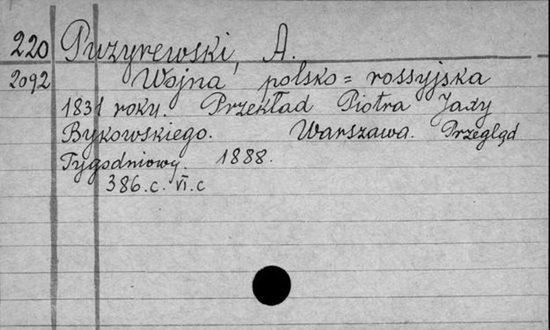 220 Puzyrewski, A.
2092 Wojna polsko=rossyjska
1831 roky. Przekład Piotra Jaxy
Bykowskiego. Warszawa. Przegląd
Tygodniowy. 1888.
386.c. VI.c